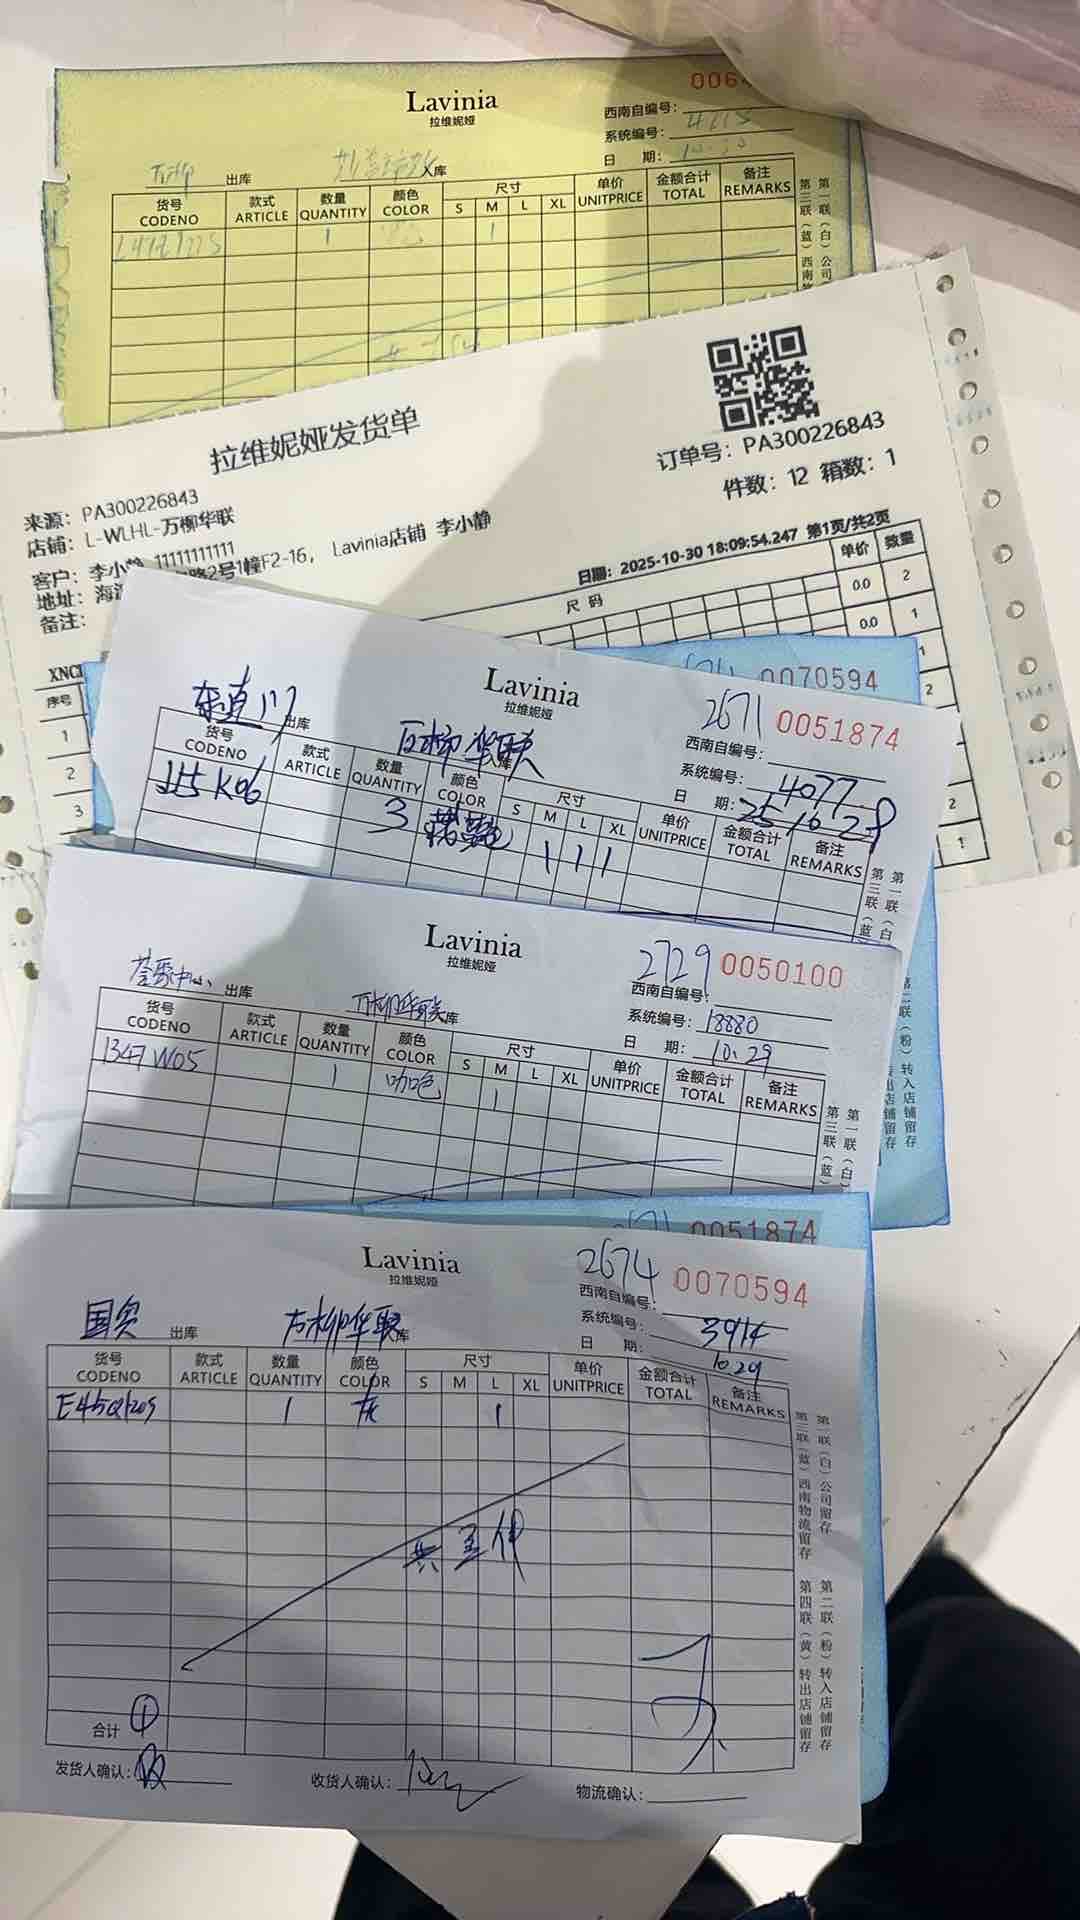 Lavinia
拉维妮娅
006
西南自编号：
系统编号：4215
日 期：10.30
万柳 出库 入库
货号 款式 数量 颜色 尺寸 单价 金额合计 备注
CODENO ARTICLE QUANTITY COLOR S M L XL UNITPRICE TOTAL REMARKS
1 1
第一联（白）公司
第三联（蓝）西南
拉维妮娅发货单
订单号：PA300226843
件数：12 箱数：1
来源：PA300226843
店铺：L-WLHL-万柳华联
客户：李小静 11111111111
地址：海 路2号1幢F2-16， Lavinia店铺 李小静
备注：
日期：2025-10-30 18:09:54.247 第1页/共2页
尺 码 单价 数量
序号
0.0 2
0.0 1
1
2
3
1
2
2
1
0070594
Lavinia
拉维妮娅
2671 0051874
西南自编号：
系统编号：4077
日 期：25.10.29
东直门 出库 万柳华联 入库
货号 款式 数量 颜色 尺寸 单价 金额合计 备注
CODENO ARTICLE QUANTITY COLOR S M L XL UNITPRICE TOTAL REMARKS
J15K06 3 1 1 1
第一联（白
第三联（蓝
Lavinia
拉维妮娅
2729 0050100
西南自编号：
系统编号：18880
日 期：10.29
荟聚中心 出库 万柳华联 库
货号 款式 数量 颜色 尺寸 单价 金额合计 备注
CODENO ARTICLE QUANTITY COLOR S M L XL UNITPRICE TOTAL REMARKS
1347W05 1 咖色 1
第一联（白）
第三联（蓝）
第二联（粉）转入店铺留存
转出店铺留存
0051874
Lavinia
拉维妮娅
2674 0070594
西南自编号：
系统编号：3914
日 期：10.29
国贸 出库 万柳华联 库
货号 款式 数量 颜色 尺寸 单价 金额合计 备注
CODENO ARTICLE QUANTITY COLOR S M L XL UNITPRICE TOTAL REMARKS
1 灰 1
共 件
合计 ①
发货人确认： 收货人确认： 物流确认：
第一联（白）公司留存
第二联（粉）转入店铺留存
第三联（蓝）西南物流留存
第四联（黄）转出店铺留存